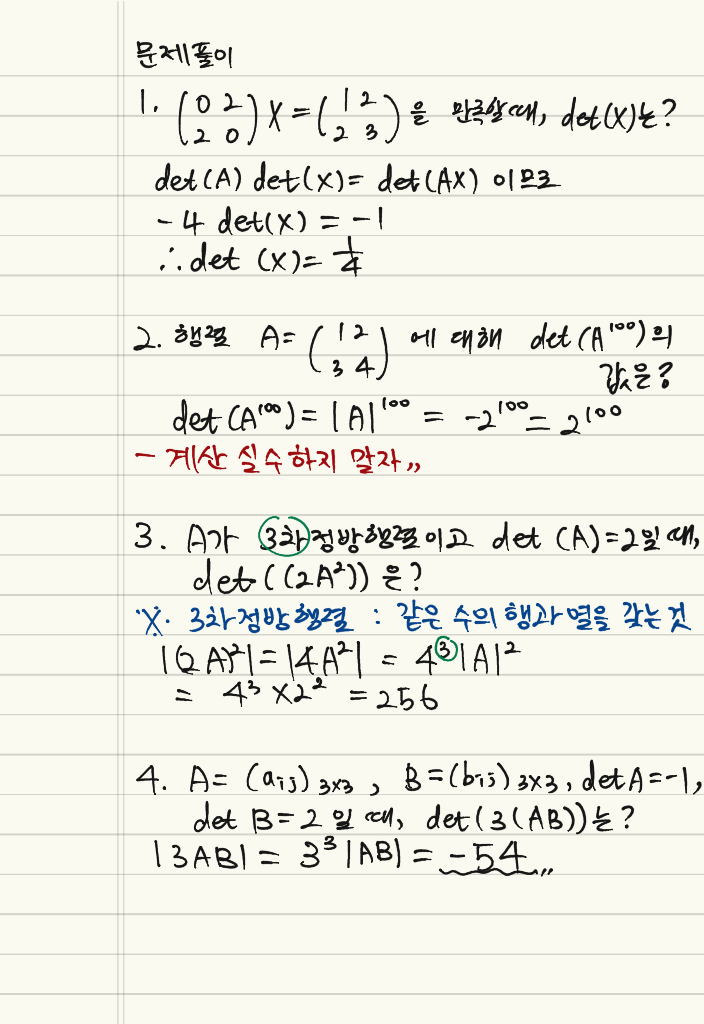 문제풀이
1. (0 2
2 0) X = (1 2
2 3) 을 만족할 때, det(X)는?
det(A) det(X) = det(AX) 이므로
-4 det(X) = -1
∴ det (X) = 1/4
2. 행렬 A = (1 2
3 4) 에 대해 det(A¹⁰⁰)의
값은?
det(A¹⁰⁰) = |A|¹⁰⁰ = -2¹⁰⁰ = 2¹⁰⁰
- 계산 실수하지 말자,,
3. A가 3차정방행렬이고 det (A) = 2일 때,
det((2A²)) 은?
※. 3차정방행렬 : 같은 수의 행과 열을 갖는 것
|(2A)²| = |4A²| = 4³|A|²
= 4³ × 2² = 256
4. A = (aij)3×3 , B = (bij)3×3, det A = -1,
det B = 2 일 때, det(3(AB))는?
|3AB| = 3³|AB| = -54,,